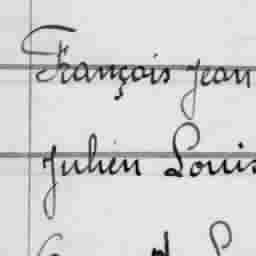 François Jean
Julien Louis